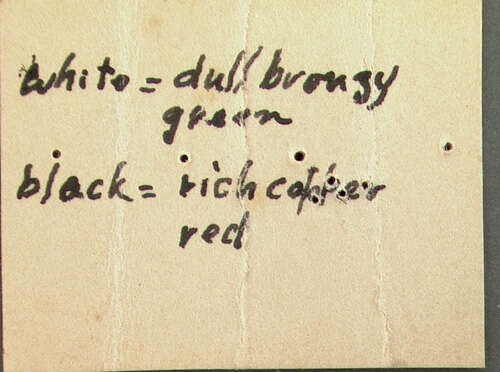 white = dull brongy
green
black = rich copper
red